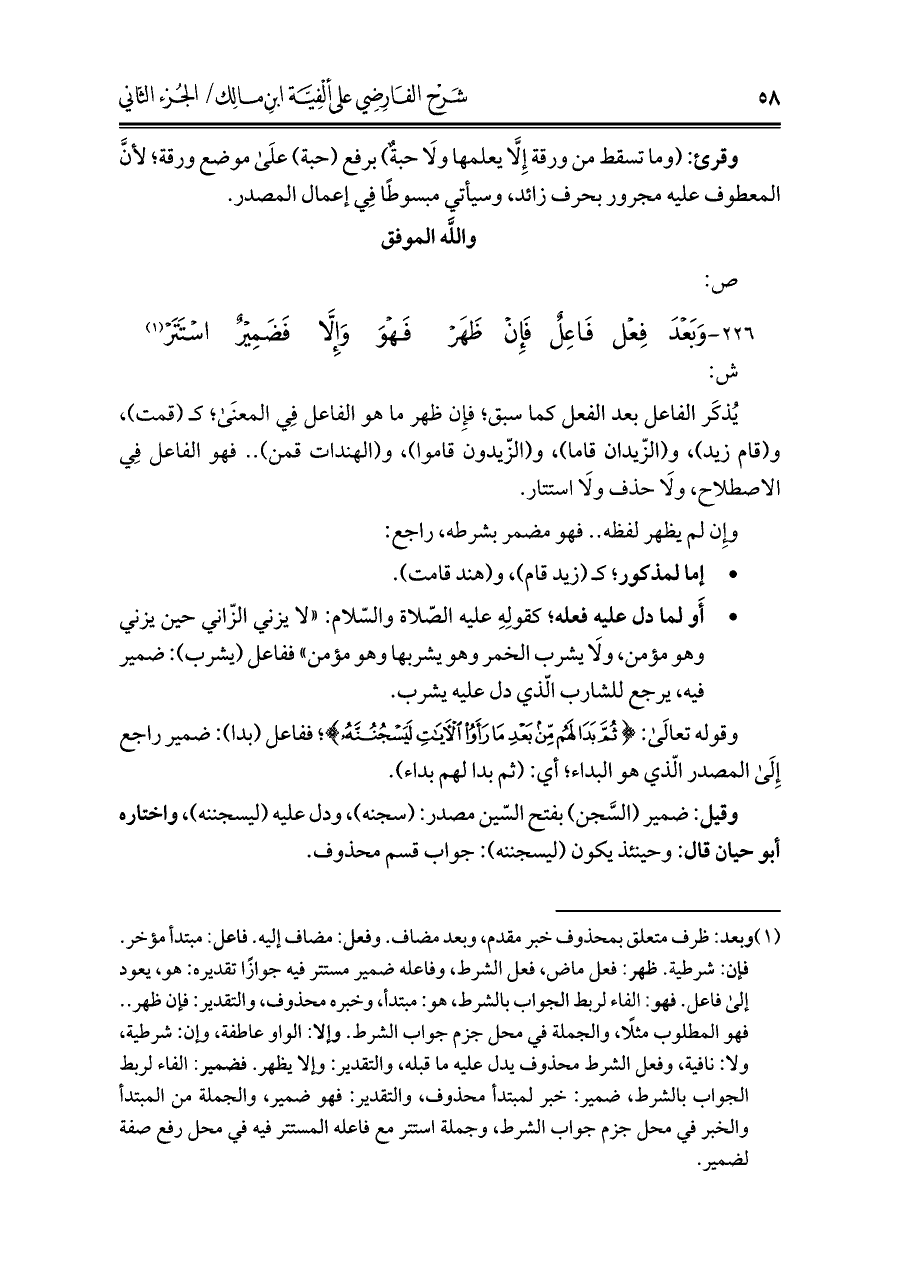 ٥٨ شَرْح الفَارِضِي على ألْفِيَّة ابنِ مَالِك/ الجُزء الثاني
وقرئ: (وما تسقط من ورقة إِلَّا يعلمها ولَا حبةٌ) برفع (حبة) علَىٰ موضع ورقة؛ لأنَّ
المعطوف عليه مجرور بحرف زائد، وسيأتي مبسوطًا فِي إعمال المصدر.
واللَّه الموفق
ص:
٢٢٦-وَبَعْدَ فِعْلٍ فَاعِلٌ فَإِنْ ظَهَرْ فَهْوَ وَإِلَّا فَضَمِيْرٌ اسْتَتَرْ(١)
ش:
يُذكَر الفاعل بعد الفعل كما سبق؛ فإِن ظهر ما هو الفاعل فِي المعنَىٰ؛ كـ (قمت)،
و(قام زيد)، و(الزّيدان قاما)، و(الزّيدون قاموا)، و(الهندات قمن).. فهو الفاعل فِي
الاصطلاح، ولَا حذف ولَا استتار.
وإِن لم يظهر لفظه.. فهو مضمر بشرطه، راجع:
• إما لمذكور؛ كـ (زيد قام)، و(هند قامت).
• أَو لما دل عليه فعله؛ كقولِهِ عليه الصّلاة والسّلام: «لا يزني الزّاني حين يزني
وهو مؤمن، ولَا يشرب الخمر وهو يشربها وهو مؤمن» ففاعل (يشرب): ضمير
فيه، يرجع للشارب الّذي دل عليه يشرب.
وقوله تعالَىٰ: ﴿ثُمَّ بَدَا لَهُم مِّنۢ بَعْدِ مَا رَأَوُا۟ ٱلْآيَٰتِ لَيَسْجُنُنَّهُۥ﴾؛ ففاعل (بدا): ضمير راجع
إِلَىٰ المصدر الّذي هو البداء؛ أي: (ثم بدا لهم بداء).
وقيل: ضمير (السَّجن) بفتح السّين مصدر: (سجنه)، ودل عليه (ليسجننه)، واختاره
أبو حيان قال: وحينئذ يكون (ليسجننه): جواب قسم محذوف.
(١) وبعد: ظرف متعلق بمحذوف خبر مقدم، وبعد مضاف. وفعل: مضاف إليه. فاعل: مبتدأ مؤخر.
فإن: شرطية. ظهر: فعل ماض، فعل الشرط، وفاعله ضمير مستتر فيه جوازًا تقديره: هو، يعود
إلىٰ فاعل. فهو: الفاء لربط الجواب بالشرط، هو: مبتدأ، وخبره محذوف، والتقدير: فإن ظهر..
فهو المطلوب مثلًا، والجملة في محل جزم جواب الشرط. وإلا: الواو عاطفة، وإن: شرطية،
ولا: نافية، وفعل الشرط محذوف يدل عليه ما قبله، والتقدير: وإلا يظهر. فضمير: الفاء لربط
الجواب بالشرط، ضمير: خبر لمبتدأ محذوف، والتقدير: فهو ضمير، والجملة من المبتدأ
والخبر في محل جزم جواب الشرط، وجملة استتر مع فاعله المستتر فيه في محل رفع صفة
لضمير.